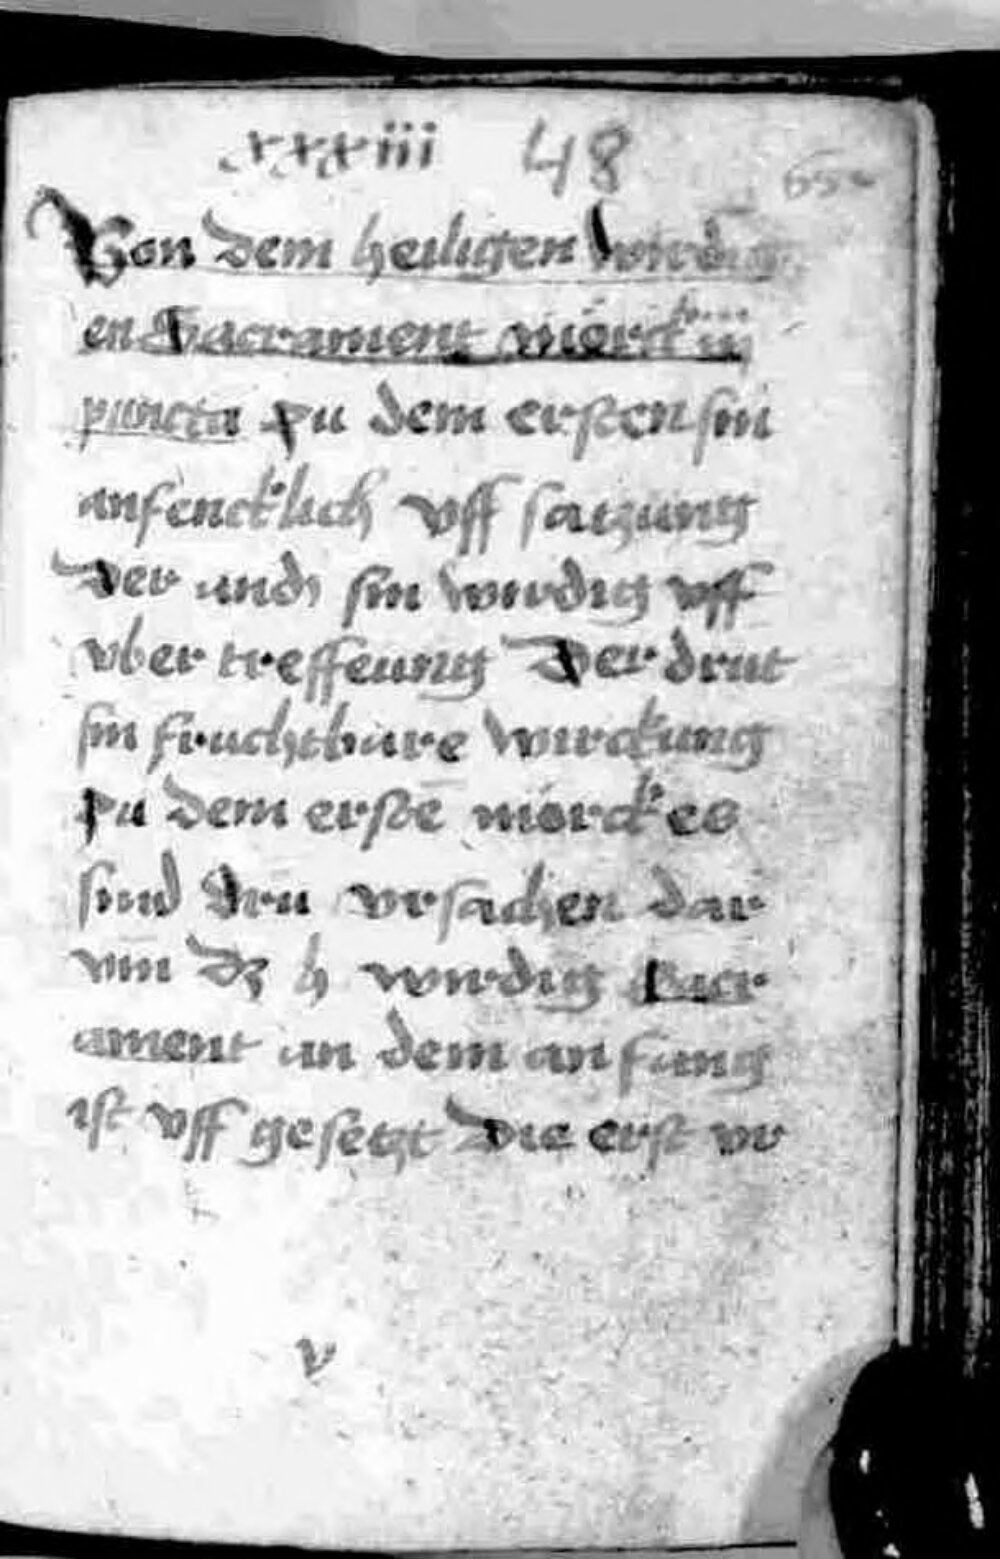 xxxiii 48 65
Von dem heiligen wirdig
en Sacrament mörck iij
puncta zu dem ersten sin
anfencklich vff satzung
Der andˀ sin wirdig vff
vber treffeung Der drit
sin fruchtbare wirckung
zu dem erstē mörck es
sind drü vrsachen dar
vm dz h wirdig Sacr
ament an dem anfang
ist vff gesetzt Die erst vr
v